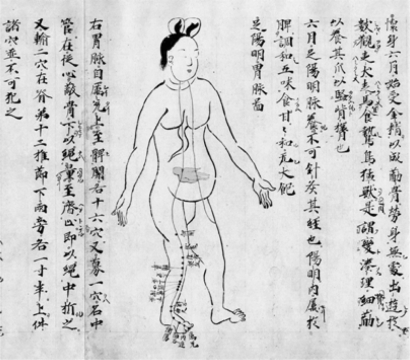 懷身六月始受金精以成筋骨勞身無處出遊於
數觀走犬走馬食鷙鳥猛獸是謂變湊理細筋
以養其爪以堅背膂也
六月足陽明脉養不可針灸其經也陽明内属於
脾調和五味食甘々和无大飽
足陽明胃脉啚
右胃脉自厲兌上至解關各十六穴又募一穴名中
管在從心蔽骨下以繩量至齊止即以繩中折之
又輸二穴在脊第十二椎節下兩旁各一寸半上件
諸穴並不可犯之